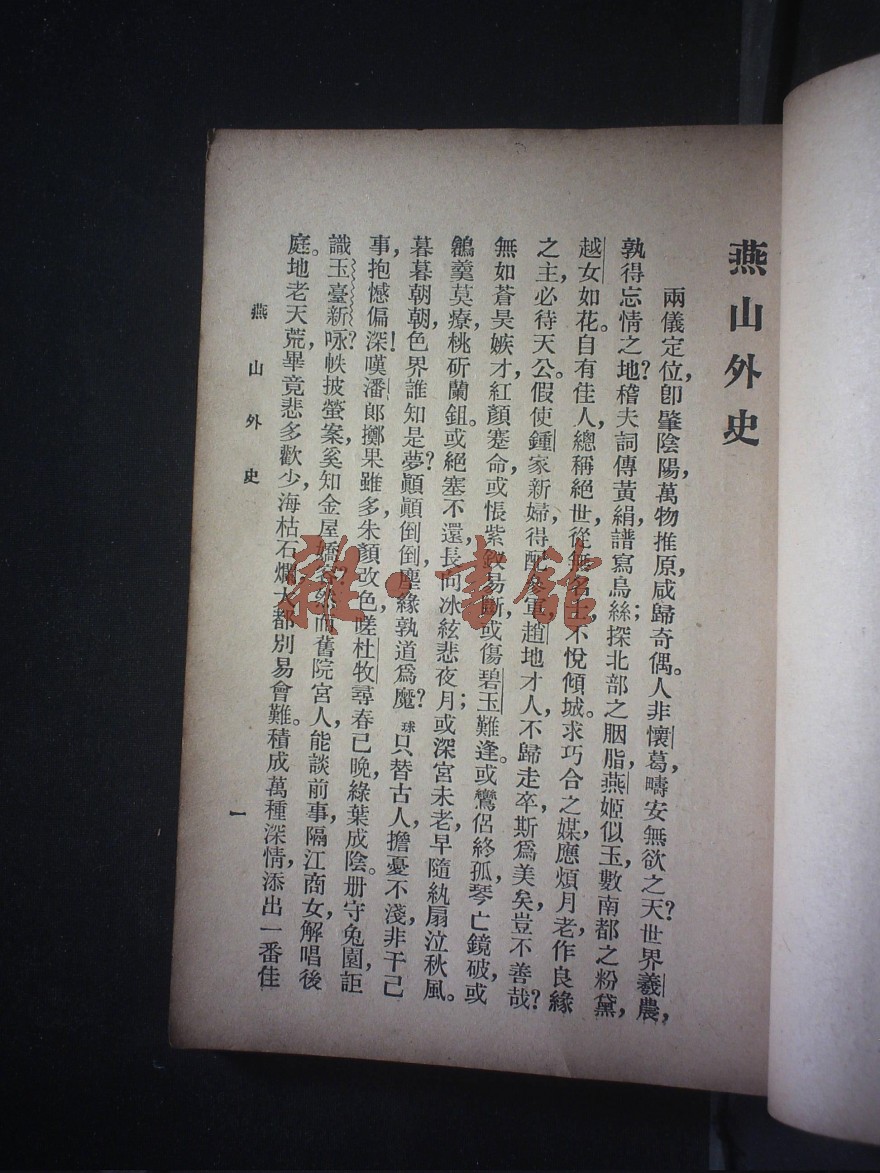 燕山外史
兩儀定位，卽肇陰陽，萬物推原，咸歸奇偶。人非懷葛，疇安無欲之天？世界羲農，
孰得忘情之地？稽夫詞傳黃絹，譜寫烏絲；探北部之胭脂，燕姬似玉，數南都之粉黛，
越女如花。自有佳人，總稱絕世，從無名士，不悅傾城。求巧合之媒，應煩月老，作良緣
之主，必待天公。假使鍾家新婦，得配參軍，趙地才人，不歸走卒，斯爲美矣，豈不善哉？
無如蒼昊嫉才，紅顏蹇命，或悵紫釵易斷，或傷碧玉難逢。或鸞侶終孤，琴亡鏡破，或
鶼羹莫療，桃斫蘭鉏。或絕塞不還，長向冰絃悲夜月；或深宮未老，早隨紈扇泣秋風。
暮暮朝朝，色界誰知是夢？顚顚倒倒，塵緣孰道爲魔？球只替古人擔憂不淺，非干己
事，抱憾偏深！嘆潘郎擲果雖多，朱顏改色，嗟杜牧尋春已晚，綠葉成陰。册守兔園，詎
識玉臺新咏？帙披螢案，奚知金屋嬌容？然而舊院宮人，能談前事，隔江商女，解唱後
庭。地老天荒，畢竟悲多歡少，海枯石爛，大都別易會難。積成萬種深情，添出一番佳
燕山外史
一
雜·書館